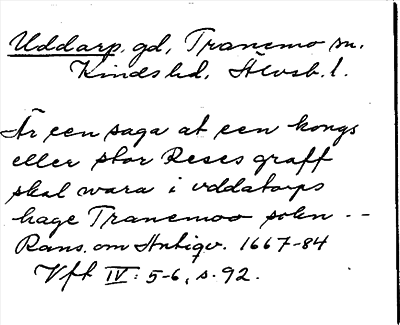 Uddarp. gd, Tranemo sn.
Kinds hd, Älvsb. l.
Är een saga at een kongs
eller stor Reses graff
skal wara i vddatorps
hage Tranemoo soken --
Rans. om Antiqv. 1667-84
Vft IV: 5-6, s. 92.